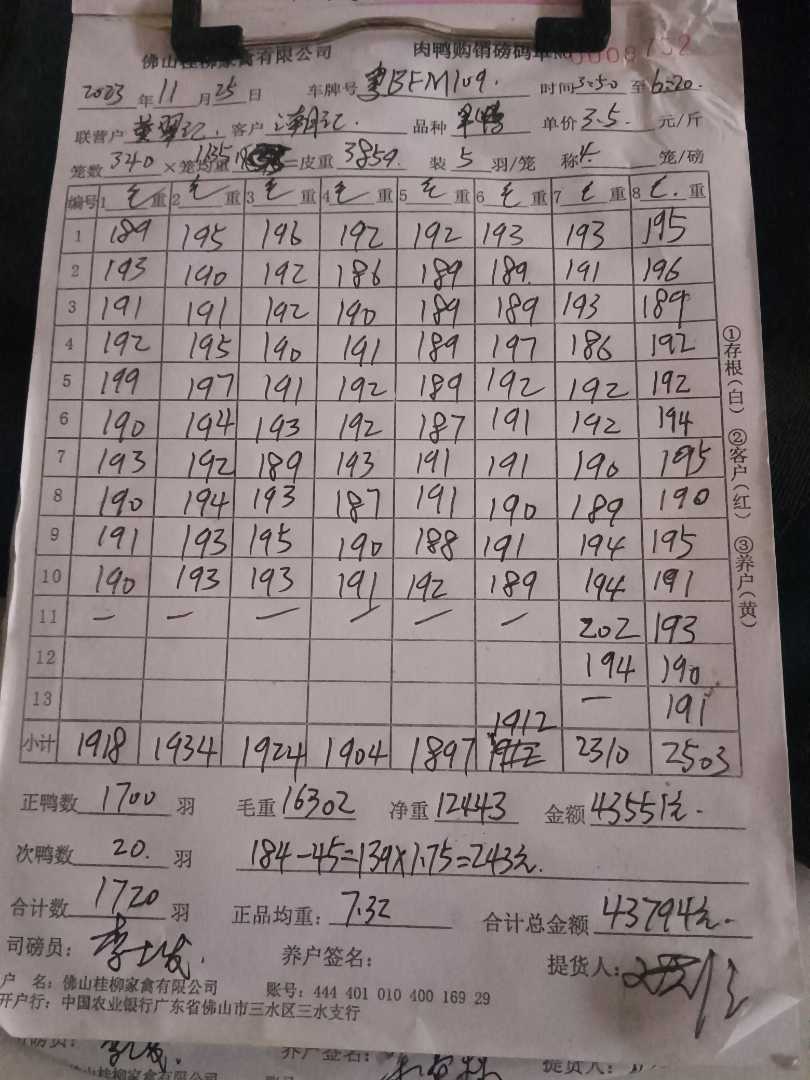 佛山桂柳家禽有限公司 肉鸭购销磅码单 №0000752
2023年11月25日 车牌号 粤BFM109. 时间3:50至6:20.
联营户 客户 记. 品种 单价3.5元/斤
笼数340×笼均重11.35=皮重3859. 装5羽/笼 称4.笼/磅
编号 1毛重 2毛重 3毛重 4毛重 5毛重 6毛重 7毛重 8毛重
1 189 195 196 192 192 193 193 195
2 193 190 192 186 189 189 191 196
3 191 191 192 190 189 189 193 189
4 192 195 190 191 189 197 186 192
5 199 197 191 192 189 192 192 192
6 190 194 193 192 187 191 192 194
7 193 192 189 193 191 191 190 195
8 190 194 193 187 191 190 189 190
9 191 193 195 190 188 191 194 195
10 190 193 193 191 192 189 194 191
11 — — — — — — 202 193
12 194 190
13 — 191
小计 1918 1934 1924 1904 1897 1912 2310 2503
正鸭数1700羽 毛重16302 净重12443 金额43551元.
次鸭数20.羽 184-45=139×1.75=243元.
合计数1720羽 正品均重:7.32 合计总金额43794元.
司磅员: 养户签名: 提货人:
户 名:佛山桂柳家禽有限公司 账号:444 401 010 400 169 29
开户行:中国农业银行广东省佛山市三水区三水支行
①存根(白) ②客户(红) ③养户(黄)
司磅员: 养户签名: 提货人:
佛山桂柳家禽有限公司